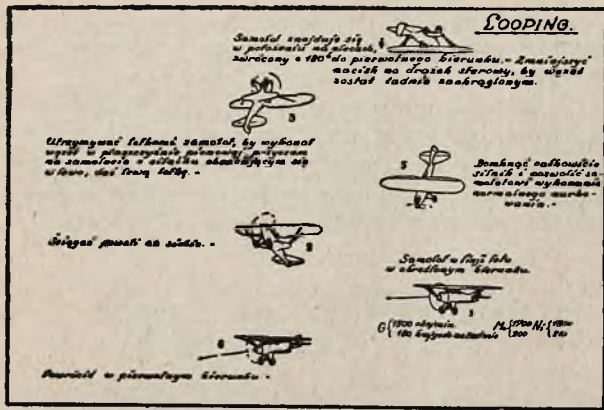 LOOPING.
Samolot znajduje się
w położeniu na plecach,
zwrócony o 180° do pierwotnego kierunku. – Zmniejszyć
nacisk na drążek sterowy, by węzeł
został ładnie zaokrąglonym.
4
3
Utrzymywać lotkami samolot, by wykonał
wzlot w płaszczyźnie pionowej
na samolocie o silniku obracającym się
w lewo, dać lewą
5
Domknąć całkowicie
silnik i pozwolić sa-
molotowi wykonanie
normalnego nurko-
wania. –
Ściągać powoli na siebie. –
2
Samolot w linji lotu
w określonym kierunku.
1
G { 1500
180
M { 1700 N {
200
6
Powrócić w pierwotnym kierunku –